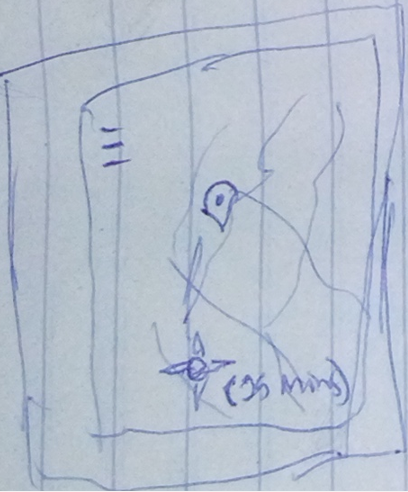 (35 mins)